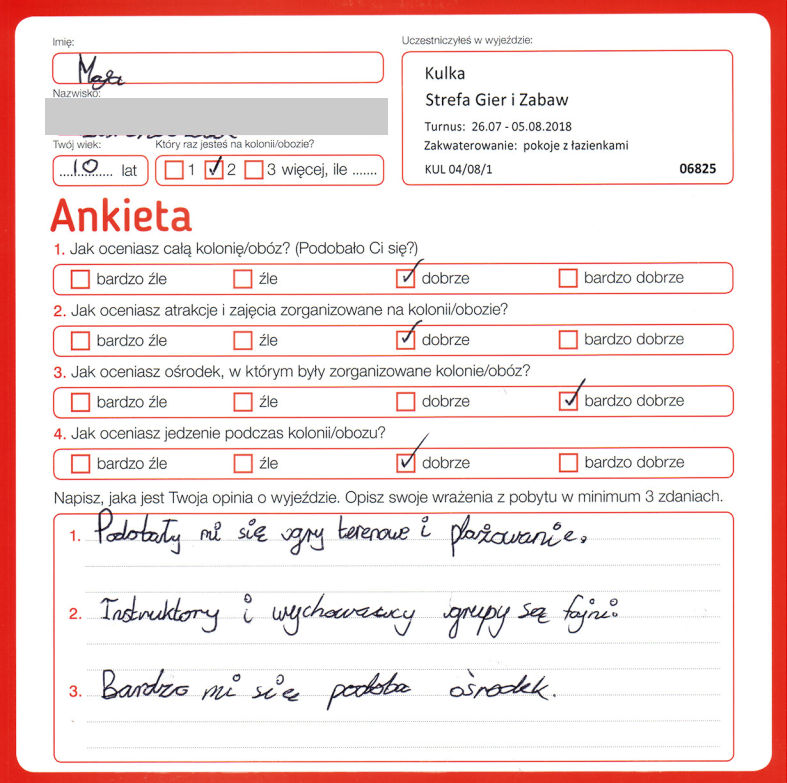 Imię:
Maja
Uczestniczyłeś w wyjeździe:
Kulka
Strefa Gier i Zabaw
Turnus: 26.07 - 05.08.2018
Zakwaterowanie: pokoje z łazienkami
KUL 04/08/1 06825
Nazwisko:
Twój wiek: Który raz jesteś na kolonii/obozie?
10 lat 1 2 3 więcej, ile .......
Ankieta
1. Jak oceniasz całą kolonię/obóz? (Podobało Ci się?)
bardzo źle źle dobrze bardzo dobrze
2. Jak oceniasz atrakcje i zajęcia zorganizowane na kolonii/obozie?
bardzo źle źle dobrze bardzo dobrze
3. Jak oceniasz ośrodek, w którym były zorganizowane kolonie/obóz?
bardzo źle źle dobrze bardzo dobrze
4. Jak oceniasz jedzenie podczas kolonii/obozu?
bardzo źle źle dobrze bardzo dobrze
Napisz, jaka jest Twoja opinia o wyjeździe. Opisz swoje wrażenia z pobytu w minimum 3 zdaniach.
1. Podobały mi się gry terenowe i plażowanie.
2. Instruktory i wychowawcy grupy są fajni.
3. Bardzo mi się podoba ośrodek.